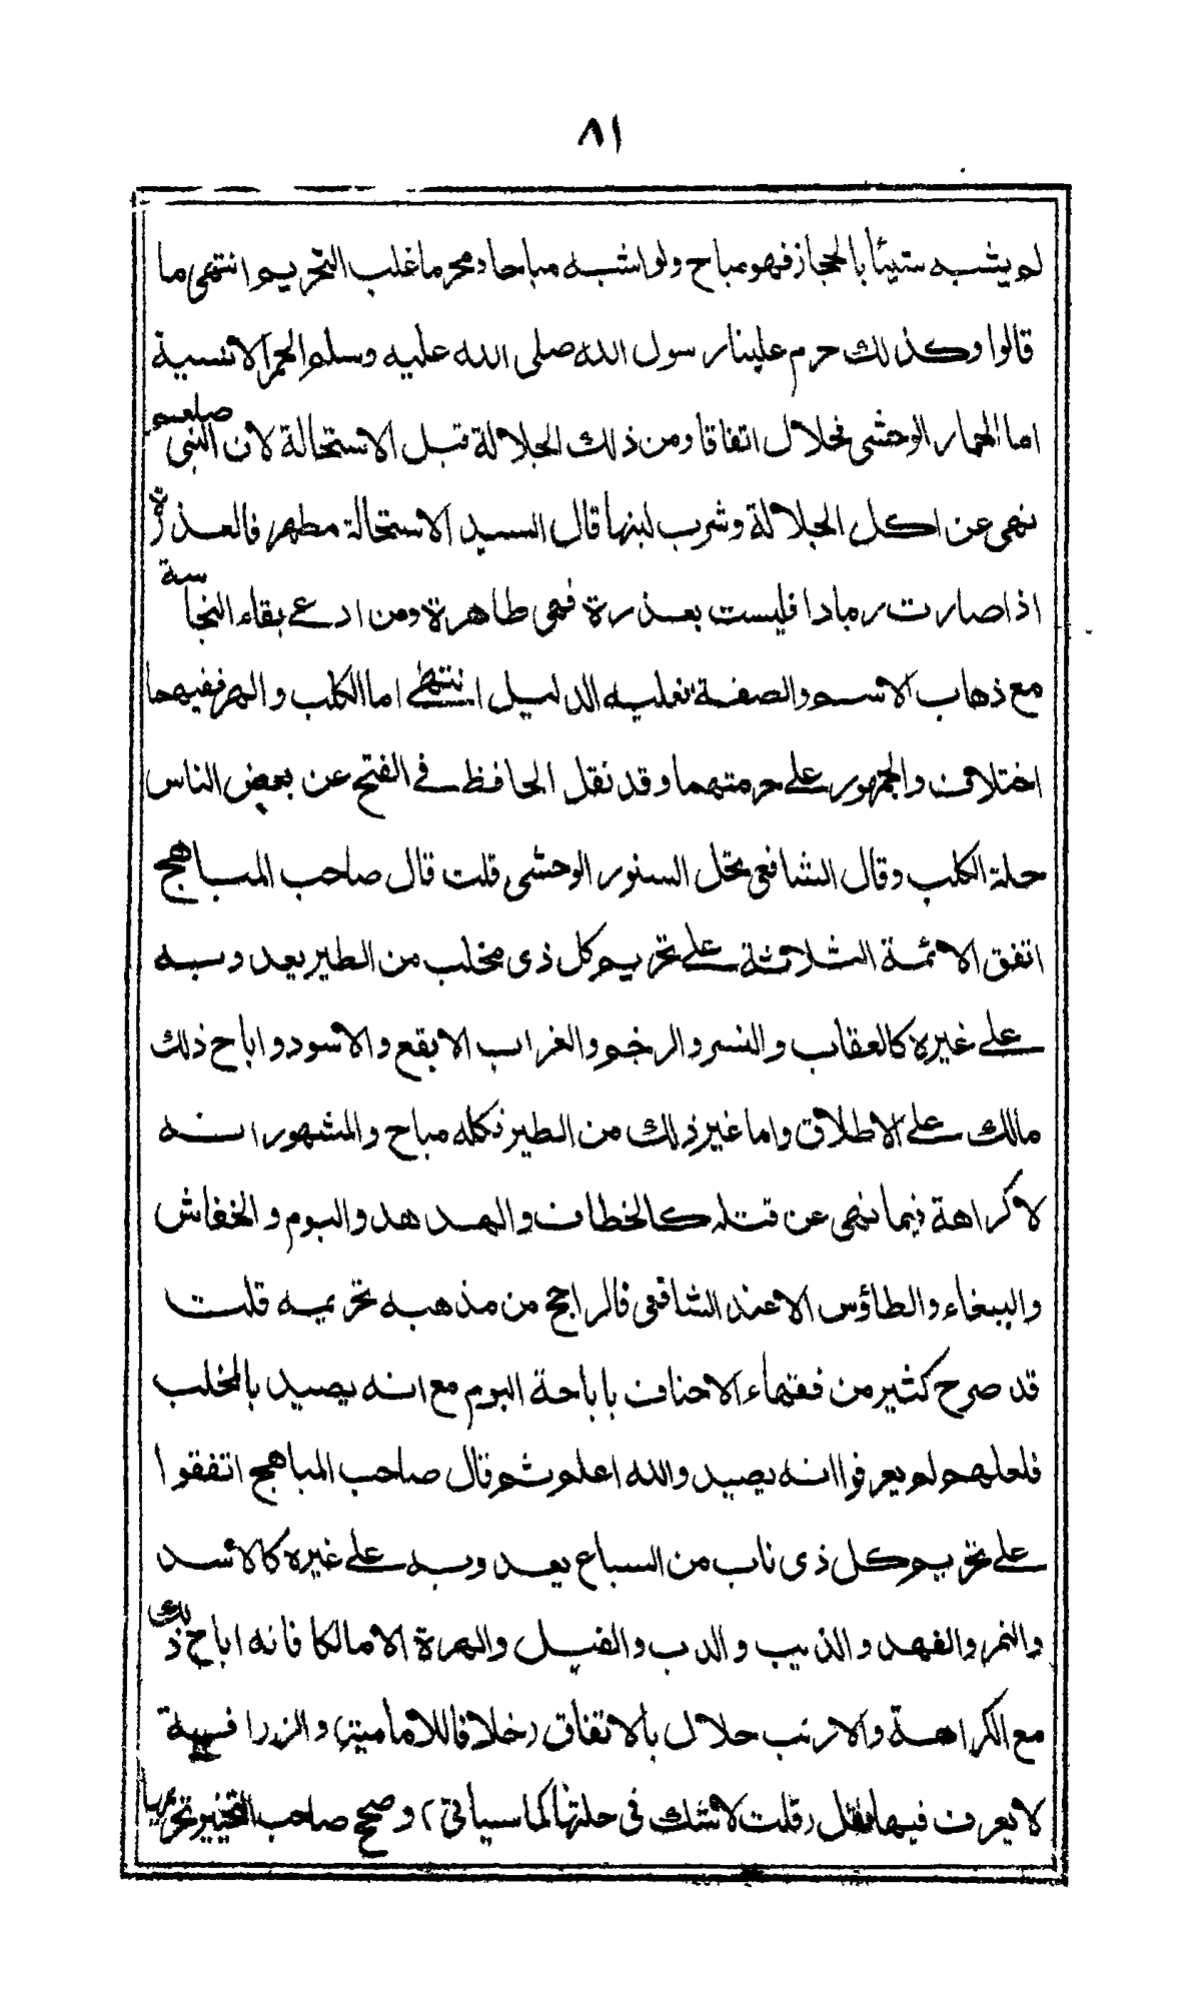 ٨١
لم يشبه شيئاً بالحجاز فهو مباح ولو اشبه مباحا ومحرما غلب التحريم انتهى ما
قالوا وكذلك حرم علينا رسول الله صلى الله عليه وسلم الحمر الانسية
اما الحمار الوحشى فحلال اتفاقا ومن ذلك الجلالة قبل الاستحالة لان النبى صلعم
نهى عن اكل الجلالة وشرب لبنها قال السيد الاستحالة مطهر فالعذرة
اذا صارت رمادا فليست بعذرة فهى طاهرة ومن ادعے بقاء النجاسة
مع ذهاب الاسم والصفة فعليه الدليل انتهٰے اما الكلب والهر ففيهما
اختلاف والجمهور علے حرمتهما وقد نقل الحافظ فے الفتح عن بعض الناس
حلة الكلب وقال الشافعى بحل السنور الوحشى قلت قال صاحب المباهج
اتفق الائمة الثلاثة علے تحريم كل ذى مخلب من الطير يعدو به
علے غيره كالعقاب والنسر والرخم والغراب الابقع والاسود واباح ذلك
مالك علے الاطلاق واما غير ذلك من الطير فكله مباح والمشهور انه
لا كراهة فيما نهى عن قتله كالخطاف والهدهد والبوم والخفاش
والببغاء والطاؤس الا عند الشافعى فالراجح من مذهبه تحريمه قلت
قد صرح كثير من فقهاء الاحناف باباحة البوم مع انه يصيد بالمخلب
فلعلهم لم يعرفوا انه يصيد والله اعلم ثم قال صاحب المباهج اتفقوا
علے تحريم كل ذى ناب من السباع يعدو به علے غيره كالاسد
والنمر والفهد والذيب والدب والفيل والهرة الا مالكا فانه اباح ذلك
مع الكراهة والارنب حلال بالاتفاق (خلافا للامامية) والزرافة
لا يعرف فيها نقل (قلت لا شك فى حلتها كما سياتى) وصحح صاحب التنبيه تحريمها